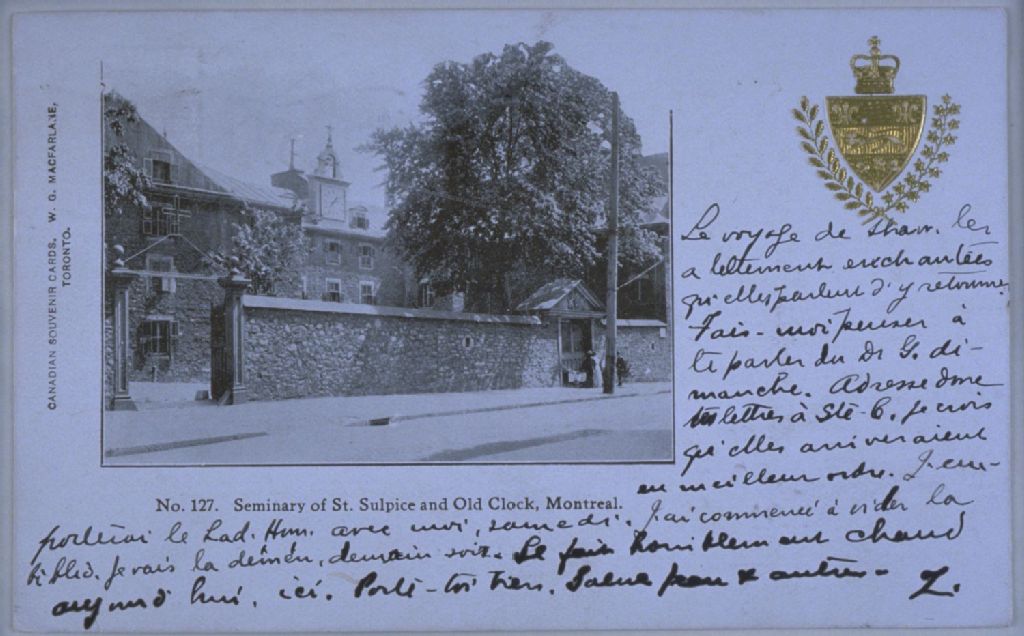 CANADIAN SOUVENIR CARDS. W. G. MACFARLANE,
TORONTO.
No. 127. Seminary of St. Sulpice and Old Clock, Montreal.
Le voyage de Shaw. les
a tellement enchantées
qu'elles parlent d'y retourner.
Fais-moi penser à
te parler du Dr G. di-
manche. Adresse donc
tes lettres à Ste-C. je crois
qu'elles arriveraient
en meilleur ordre. J'em-
porterai le Lad. Hom. avec moi, samedi. J'ai commencé à vider la
biblio. Je vais la démén. demain soir. Il fait horriblement chaud
aujourd'hui, ici. Porte-toi bien. Salue peau & autres- Z.